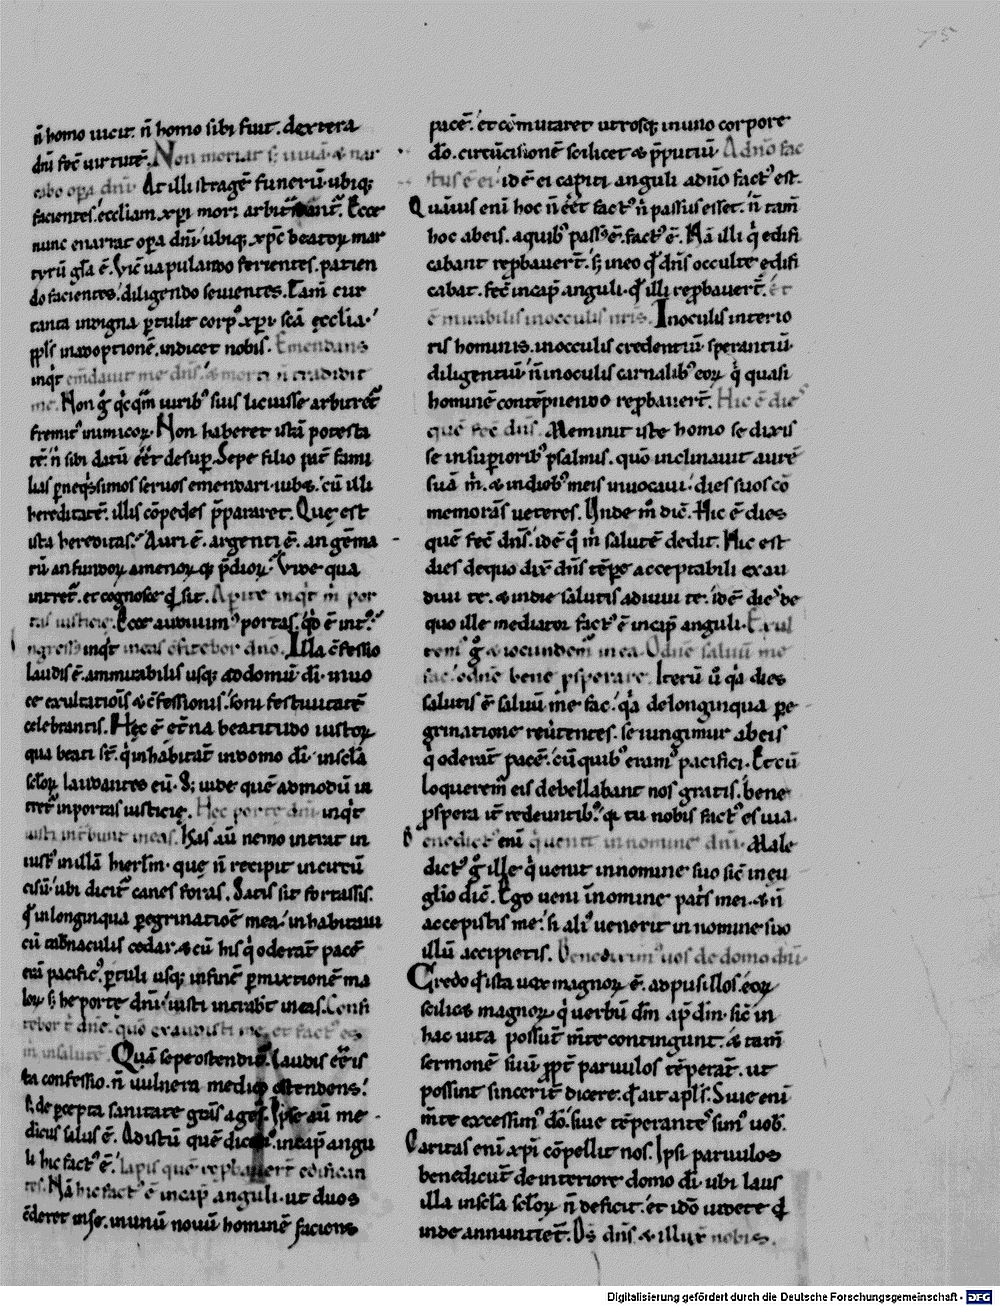 75
n̄ homo uicit. n̄ homo sibi fuit. dextera
dn̄i fec̄ uirtutē. Non moriar sꝫ uiuā & nar
rabo opa dn̄i. At illi stragē funerū ubiqꝫ
facientes. ęccliam xp̄i mori arbitrabant̄. Ecce
nunc enarrat opa dn̄i. ubiqꝫ xp̄c beatoꝝ mar
tyrū gl̄a ē. Vic̄ uapulando ferientes. patien
do facientes. diligendo seuientes. Tam̄ cur
tanta indigna ꝑtulit corpꝰ xp̄i. sc̄a ęcclia.
ppl̄s in adoptionē. indicet nobis. Emendans
inqͥt emdauit me dn̄s. & morti n̄ tradidit
me. Non g̊ qicqͥm uiribꝰ suis licuisse arbitret̄
fremitꝰ inimicoꝝ. Non haberet istā potesta
tē. n̄ sibi datū eēt desup. Sepe filio pat̄ fami
lias ꝑ neqͥssimos seruos emendari iubet. cū illi
hereditatē. illis cōpedes p̄pararet. Que est
ista hereditas. Auri ē. argenti ē. an gēma
rū an fundoꝝ amenoꝝ qꝫ p̄dioꝝ. Vide qua
intret̄. et cognosce qd̄ sit. Apite inqͥt m̄ por
tas iusticię. Ecce audiuimꝰ portas. qd̄ ē intꝰ.
Ingressꝰ inqͥt in eas c̄fitebor dn̄o. Illa c̄fessio
laudis ē. ammirabilis usqꝫ ad domū di. in uo
ce exultatiōis & c̄fessionis. soni festiuitatē
celebrantis. Hęc ē et̄na beatitudo iustoꝝ
qua beati st̄. qͥ inhabitāt in domo di. in scl̄a
scl̄oꝝ laudantes eū. Sꝫ uide quē admodū in
tret̄ in portas iusticię. Hęc porte dn̄i inqͥt
iusti intbunt in eas. Has aū nemo intrat in
iustꝰ in illā hierlm̄. que n̄ recipit incircū
cisū. ubi dicit̄ canes foras. Satis sit fortassis.
qd̄ in longinqua ꝑegrinatiōe mea. inhabitaui
cū tab̄naculis cedar. & cū his qͥ oderāt pacē
erā pacificꝰ. ꝑtuli usqꝫ in finē ꝑmixtionē ma
loꝝ sꝫ hę porte dn̄i. iusti intrabt̄ in eas. Confi
tebor t̄ dn̄e. qm̄ exaudisti me. et factꝰ es
m̄ in salutē. Quā sepe ostendit̄. laudis eē is
ta confessio. n̄ uulnera medico ostendens.
sꝫ de pcepta sanitate gr̄as agēs. Ipse aū me
dicus salus ē. Ad istū quē dicimꝰ. in cap angu
li hic factꝰ ē. Lapis quē repbauert̄ edifican
tes. Nā hic factꝰ ē in cap anguli. ut duos
c̄deret in se. in unū nouū hominē faciens
pacē. et cōmutaret utrosqꝫ in uno corpore
dō. circūcisionē scilicet & p̄putiū. A dn̄o fac
tus ē ei. idē ei capiti anguli a dn̄o factꝰ est.
Quāuis eni hoc n̄ eēt factꝰ n̄ passus esset. n̄ tam̄
hoc ab eis. a quibꝰ passꝰ ē. factꝰ ē. Nā illi qͥ edifi
cabant repbauert̄. sꝫ in eo qd̄ dn̄s occulte edifi
cabat. fec̄ in cap anguli. qd̄ illi repbauert̄. Et
ē mirabilis in occulis nr̄is. In oculis interio
ris hominis. in occulis credentiū. sperantiū.
diligentiū. n̄ in oculis carnalibꝰ eoꝝ qͥ quasi
hominē contēpnendo repbauert̄. Hic ē dies
quē fec̄ dn̄s. Meminit iste homo se dixis
se in supioribꝰ psalmis. quō inclinauit aurē
suā m̄. & in diebꝰ meis inuocaui. dies suos cō
memorās ueteres. Vnde m̄ dic̄. Hic ē dies
quē fec̄ dn̄s. idē qͥ m̄ salutē dedit. Hic est
dies de quo dix̄ dn̄s tēpe acceptabili exau
diui te. & in die salutis adiuui te. id ē dieʼ de
quo ille mediator factꝰ ē in cap anguli. Exul
temꝰ g̊ & iocundem̄ in ea. O dn̄e saluū me
fac. o dn̄e bene psperare. Iterū u̇ qa dies
salutis ē saluū me fac. qa de longinqua pe
grinatione reūtentes. seiungimur ab eis
qͥ oderāt pacē. cū quibꝰ eramꝰ pacifici. Et cū
loqueremꝰ eis debellabant nos gratis. bene
pspera it̄ redeuntibꝰ. qa tu nobis factꝰ es uia.
Benedictꝰ eni qͥ uenit in nomine dn̄i. Male
dictꝰ g̊ ille qͥ uenit in nomine suo sic̄ in eu
glio dic̄. Ego ueni in nomine patͥs mei. & n̄
accepistis me. si aliꝰ uenerit in nomine suo
illū accipietis. Benediximꝰ uos de domo dn̄i.
Credo qd̄ ista uox magnoꝝ ē. ad pusillos. eoꝝ
scilicet magnoꝝ qͥ uerbū dm̄ ap̄ dm̄. sic̄ in
hac uita possūt m̄te contingunt. & tam̄
sermonē suū ppt̄ paruulos tēperāt. ut
possint sinceriť dicere. qd̄ ait apl̄s. Siue eni
m̄te excessimꝰ dō. siue tēperanteʼ simꝰ uob̄.
Caritas eni xp̄i cōpellit nos. Ipsi paruulos
benedicūt de interiore domo di. ubi laus
illa in scl̄a scl̄oꝝ n̄ deficit. et idō uidete qd̄
inde annuntiet̄. Ds̄ dn̄s & illux̄ nobis.
Digitalisierung gefördert durch die Deutsche Forschungsgemeinschaft - DFG